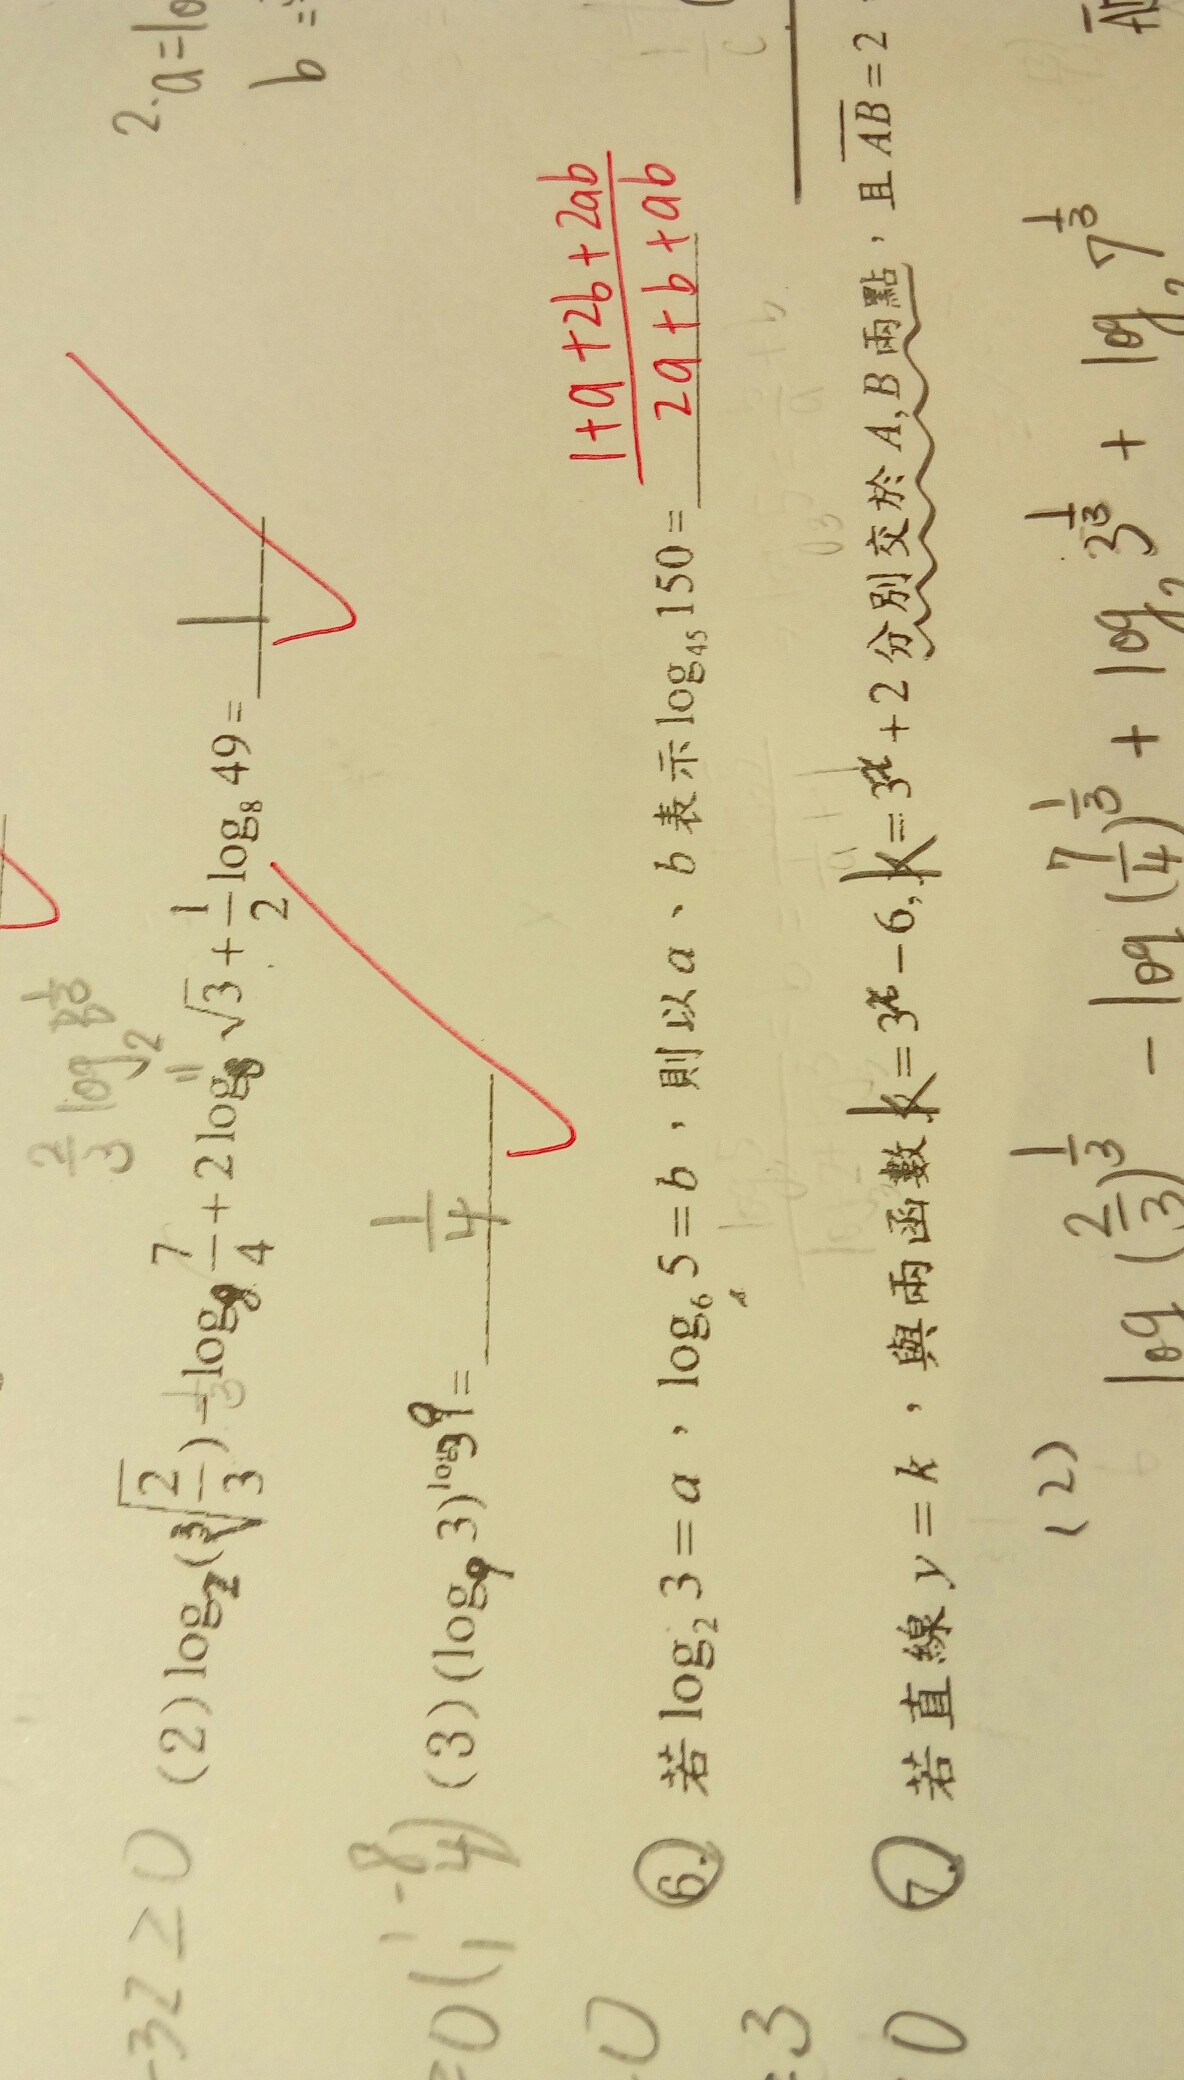 2. a = lo
b =
2/3 log₂
(2) log₂(∛(2/3)) − log₈ 7/4 + 2 log₈ √3 + 1/2 log₈ 49 = 1
(3) (log₉ 3)^(log₃ 9) = 1/4
6. 若 log₂ 3 = a，log₆ 5 = b，則以 a、b 表示 log₄₅ 150 = (1+a+2b+2ab)/(2a+b+ab)
7. 若直線 y = k，與兩函數 k = 3ˣ − 6, k = 3ˣ + 2 分別交於 A, B 兩點，且 AB = 2
(2) log (2/3)^(1/3) − log (7/4)^(1/3) + log₂ 3^(1/3) + log₂ 7^(1/3)
-3z ≥ 0
= 0
0
= 3
0